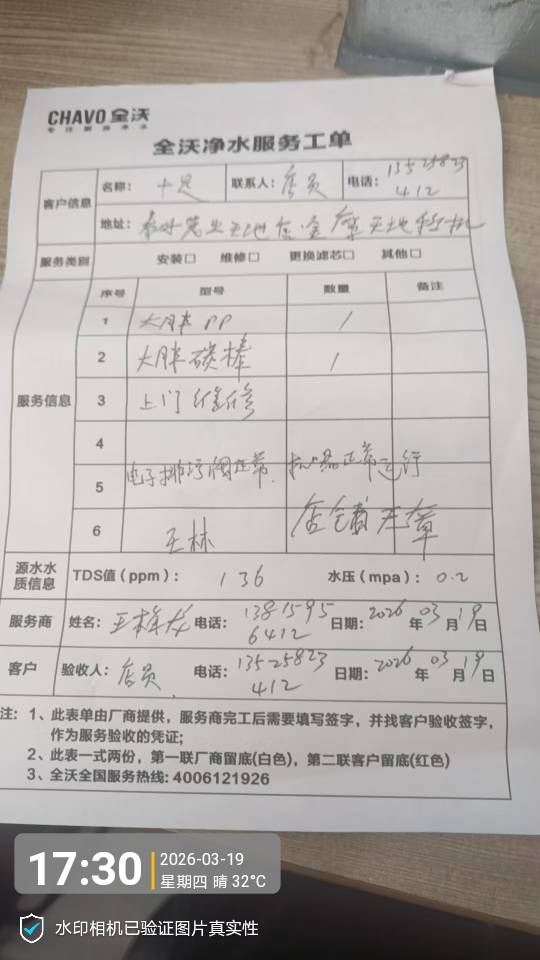 CHAVO 全沃
专注厨房净水
全沃净水服务工单
客户信息 名称: 联系人: 店员 电话: 13525823412
地址:
服务类别 安装□ 维修□ 更换滤芯□ 其他□
服务信息 序号 型号 数量 备注
1 大胖PP 1
2 大胖碳棒 1
3 上门维修
4
电子排污阀正常. 机器正常运行
5
店铺无章
6 王林
源水水质信息 TDS值(ppm): 136 水压(mpa): 0.2
服务商 姓名: 电话: 13815956412 日期: 2026年03月19日
客户 验收人: 店员. 电话: 13525823412 日期: 2026年03月19日
注: 1、此表单由厂商提供，服务商完工后需要填写签字，并找客户验收签字，
作为服务验收的凭证;
2、此表一式两份，第一联厂商留底(白色)，第二联客户留底(红色)
3、全沃全国服务热线: 4006121926
17:30 2026-03-19
星期四 晴 32°C
水印相机已验证图片真实性